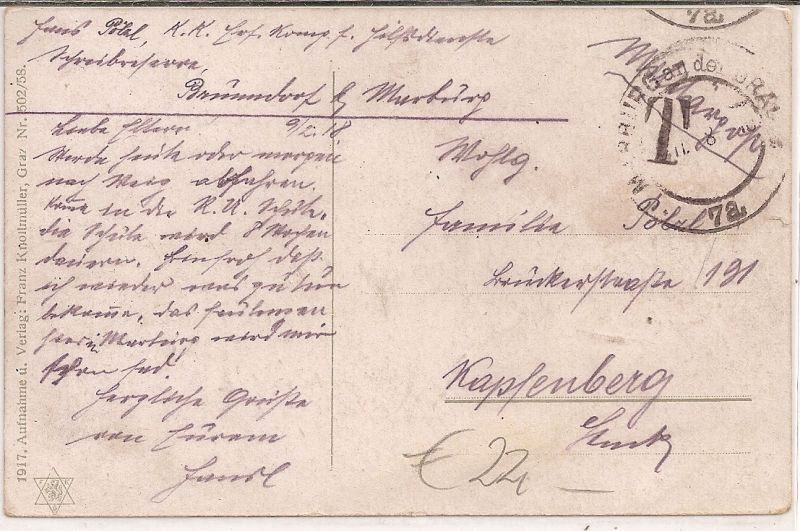 Hans Pölzl, K. K. Ers. Komp. f. Hilfsdienste
Schreibreserve
Brunndorf b Marburg
Liebe Eltern 9/2. 18
Werde heute oder morgen
nach abfahren.
Komme in die R. U. Schule,
die Schule wird 8 Wochen
dauern. Bin froh daß
ich wieder was zu tun
bekomme, das faulenzen
hier in Marburg wird mir
schon fad.
Herzliche Grüße
von Eurem
Hansl
Wohlg.
Familie Pölzl
Brückerstraße 191
Kapfenberg
€ 22 –
MARBURG an der DRAU
7a
7a
T
1917, Aufnahme u. Verlag: Franz Knollmüller, Graz Nr. 502/58.